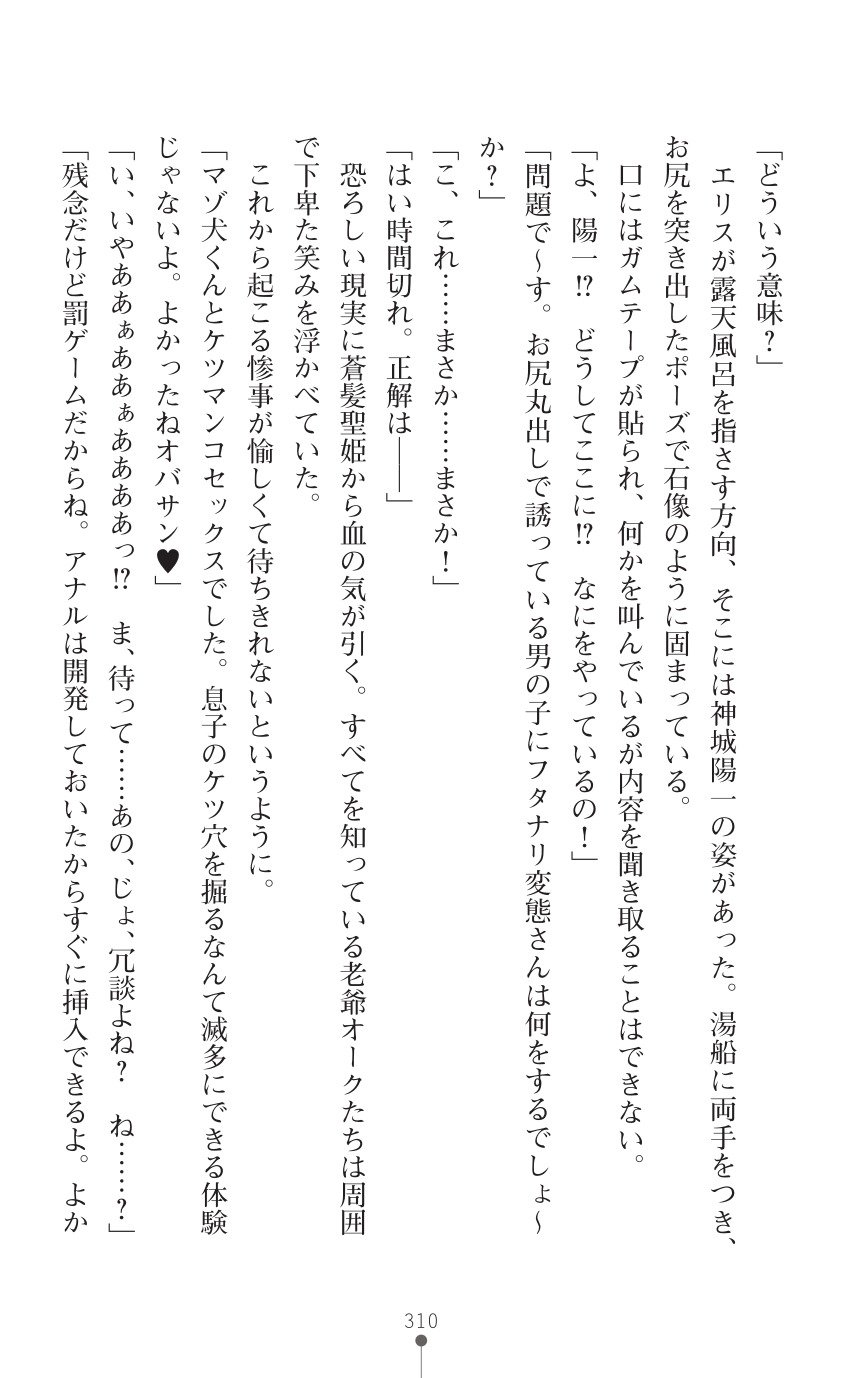 「どういう意味？」
　エリスが露天風呂を指さす方向、そこには神城陽一の姿があった。湯船に両手をつき、
お尻を突き出したポーズで石像のように固まっている。
　口にはガムテープが貼られ、何かを叫んでいるが内容を聞き取ることはできない。
「よ、陽一!?　どうしてここに!?　なにをやっているの！」
「問題で～す。お尻丸出しで誘っている男の子にフタナリ変態さんは何をするでしょ～
か？」
「こ、これ……まさか……まさか！」
「はい時間切れ。正解は――」
　恐ろしい現実に蒼髪聖姫から血の気が引く。すべてを知っている老爺オークたちは周囲
で下卑た笑みを浮かべていた。
　これから起こる惨事が愉しくて待ちきれないというように。
「マゾ犬くんとケツマンコセックスでした。息子のケツ穴を掘るなんて滅多にできる体験
じゃないよ。よかったねオバサン♥」
「い、いやああぁああぁああああっ!?　ま、待って……あの、じょ、冗談よね？　ね……？」
「残念だけど罰ゲームだからね。アナルは開発しておいたからすぐに挿入できるよ。よか
310